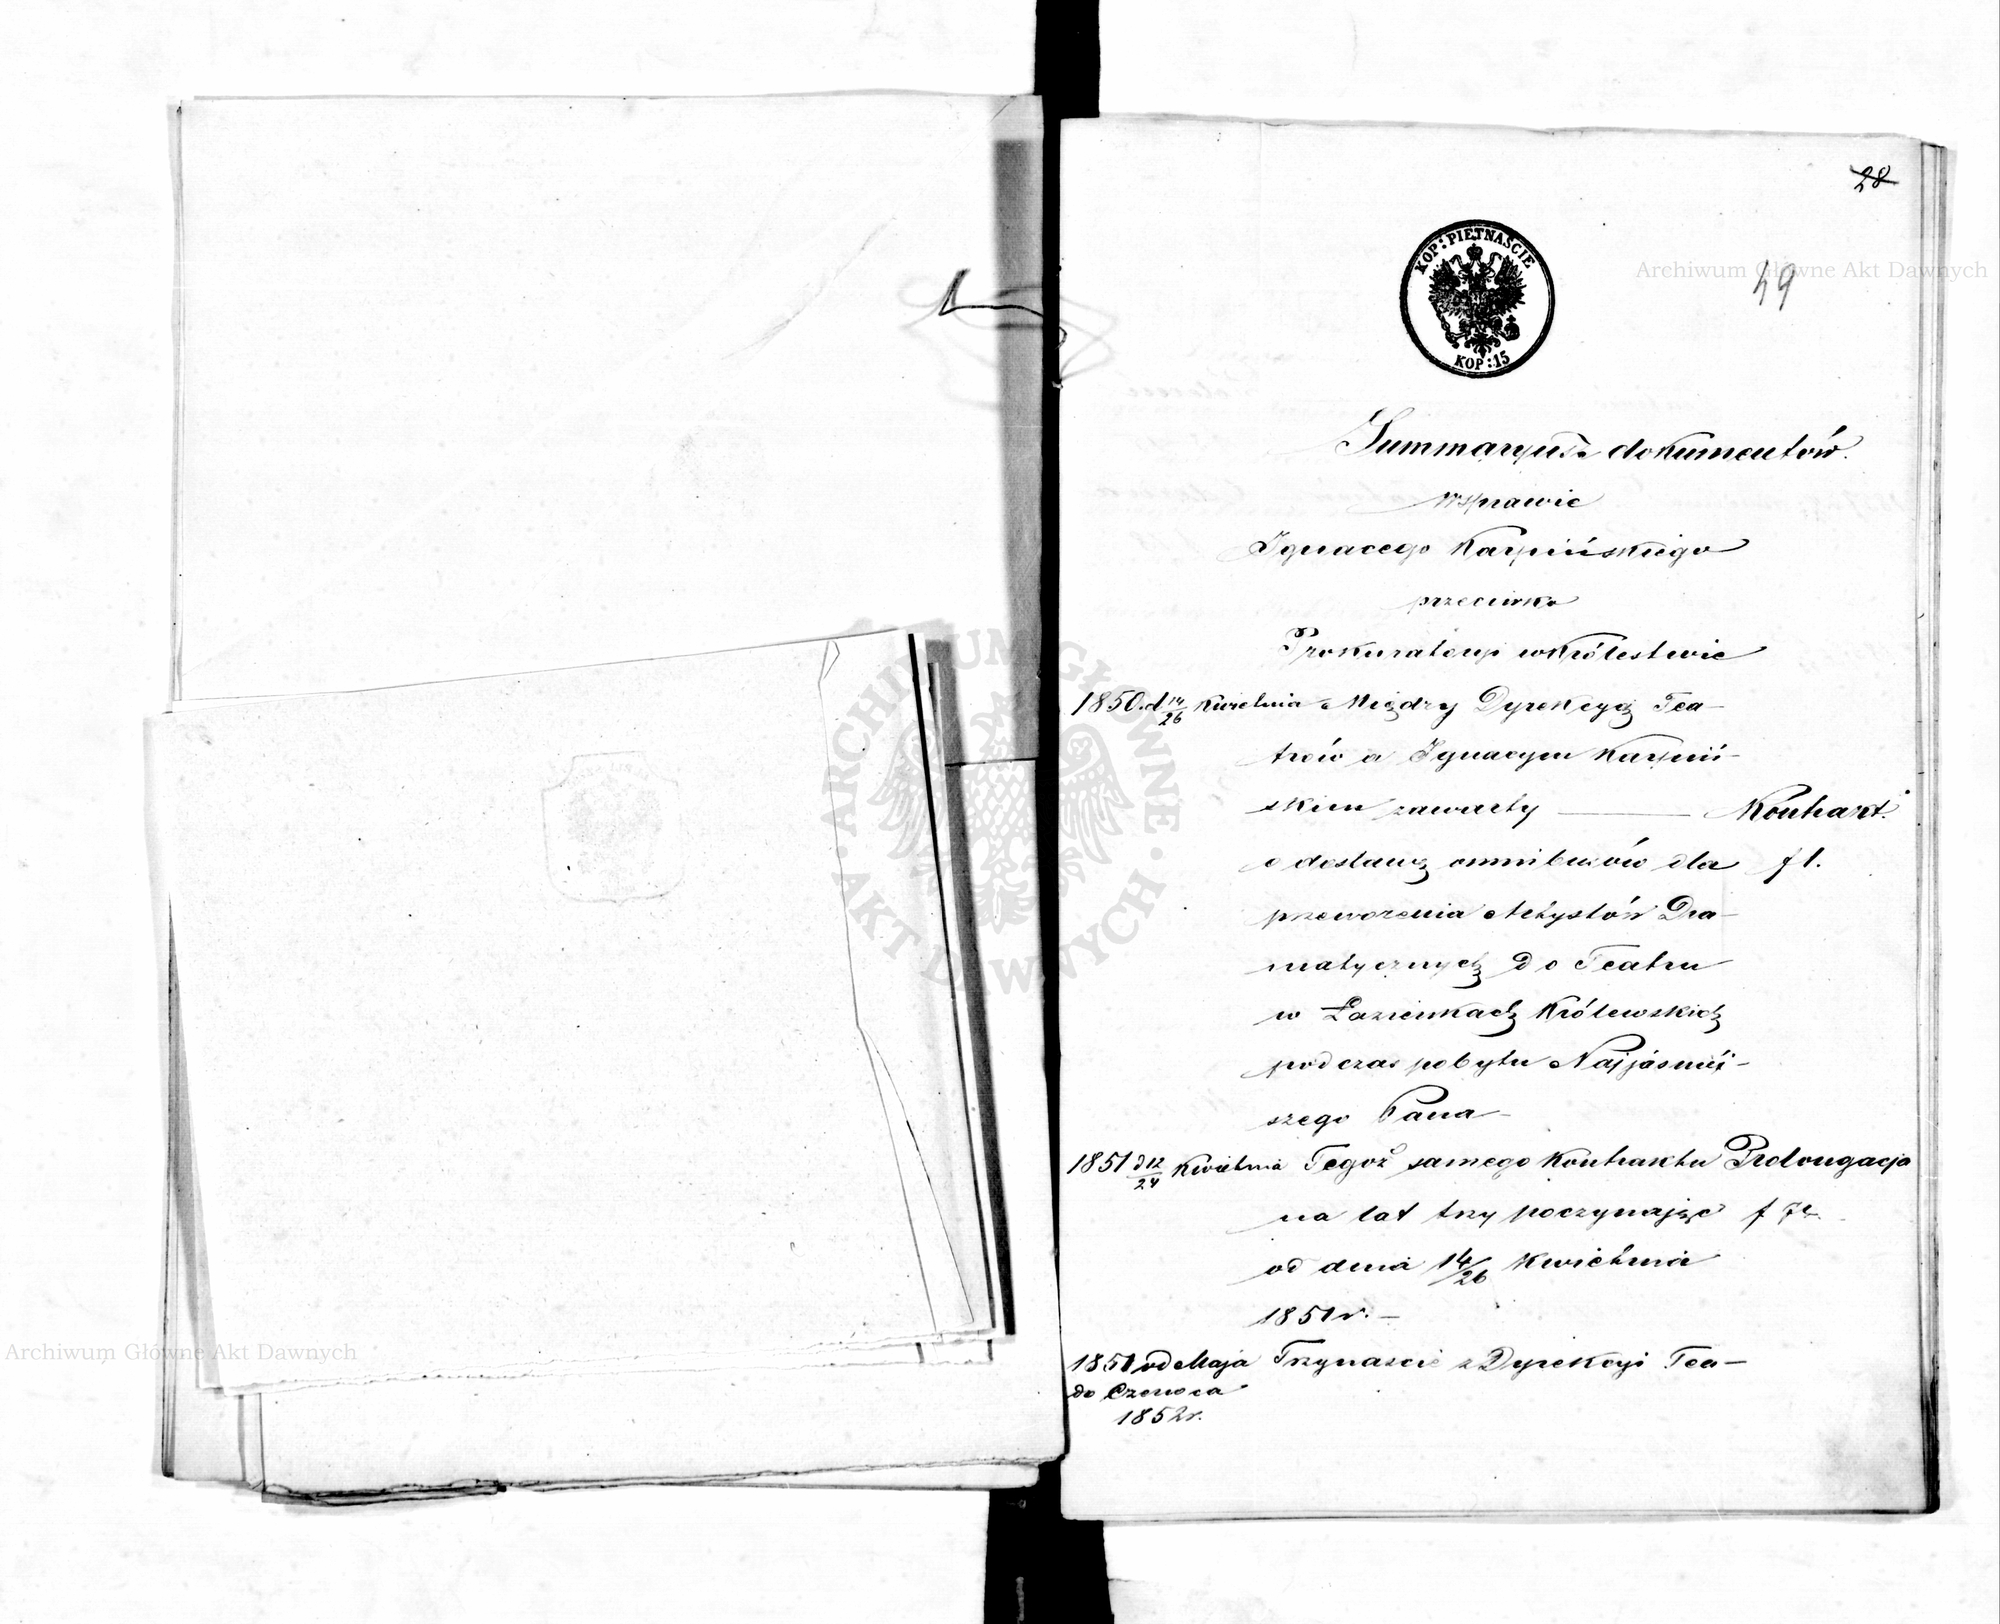 28
KOP: PIĘTNAŚCIE
KOP: 15
49
Summaryusz dokumentów.
w sprawie
Ignacego Karpińskiego
przeciwko
Prokuratoryi w Królestwie
1850 d 14/26 Kwietnia Między Dyrekcyą Tea-
trów a Ignacym Karpiń-
skim zawarty — Kontrakt.
o dostawę omnibusów dla f 1.
przewożenia Artystów Dra-
matycznych do Teatru
w Łazienkach Królewskich
podczas pobytu Najjaśniej-
szego Pana -
1851 d 12/24 Kwietnia Tegoż samego Kontraktu Prolongacja
na lat trzy poczynając f
od dnia 14/26 Kwietnia
1851 r. -
1851 od Maja Trzynaście z Dyrekcyi Tea-
do Czerwca
1852 r.
Archiwum Główne Akt Dawnych
Archiwum Główne Akt Dawnych
ARCHIWUM GŁÓWNE
AKT DAWNYCH